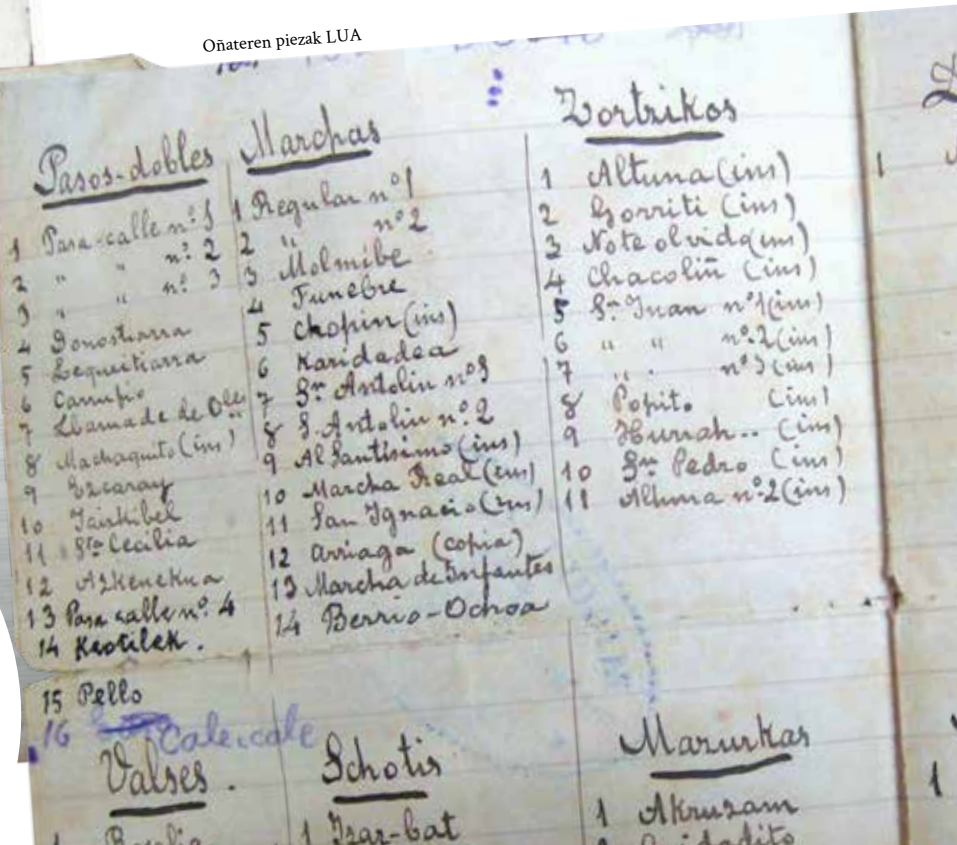 Oñateren piezak LUA
Pasos-dobles
1 Pasa-calle nº 1
2 " " nº 2
3 " " nº 3
4 Donostiarra
5 Lequitiarra
6
7 Llamade de Ole
8 Machaquito (ins)
9 Ezcaray
10 Jaizkibel
11 Sta Cecilia
12 Azkenekua
13 Pasa calle nº 4
14
15 Pello
16 Cale-cale
Marchas
1 Regular nº 1
2 " nº 2
3
4 Funebre
5 Chopin (ins)
6 Karidadea
7 Sn Antolin nº 1
8 S. Antolin nº 2
9 Al Santísimo (ins)
10 Marcha Real (ins)
11 San Ignacio (ins)
12 Arriaga (copia)
13 Marcha de Infantes
14 Berrio-Ochoa
Zortzikos
1 Altuna (ins)
2 Gorriti (ins)
3 No te olvida (ins)
4 Chacoliñ (ins)
5 Sn Juan nº 1 (ins)
6 " " nº 2 (ins)
7 " " nº 3 (ins)
8 Popito (ins)
9 Hurrah.. (ins)
10 Sn Pedro (ins)
11 Altuna nº 2 (ins)
1
Valses.
1
Schotis
1 Izar-bat
Mazurkas
1 Akruzam
1